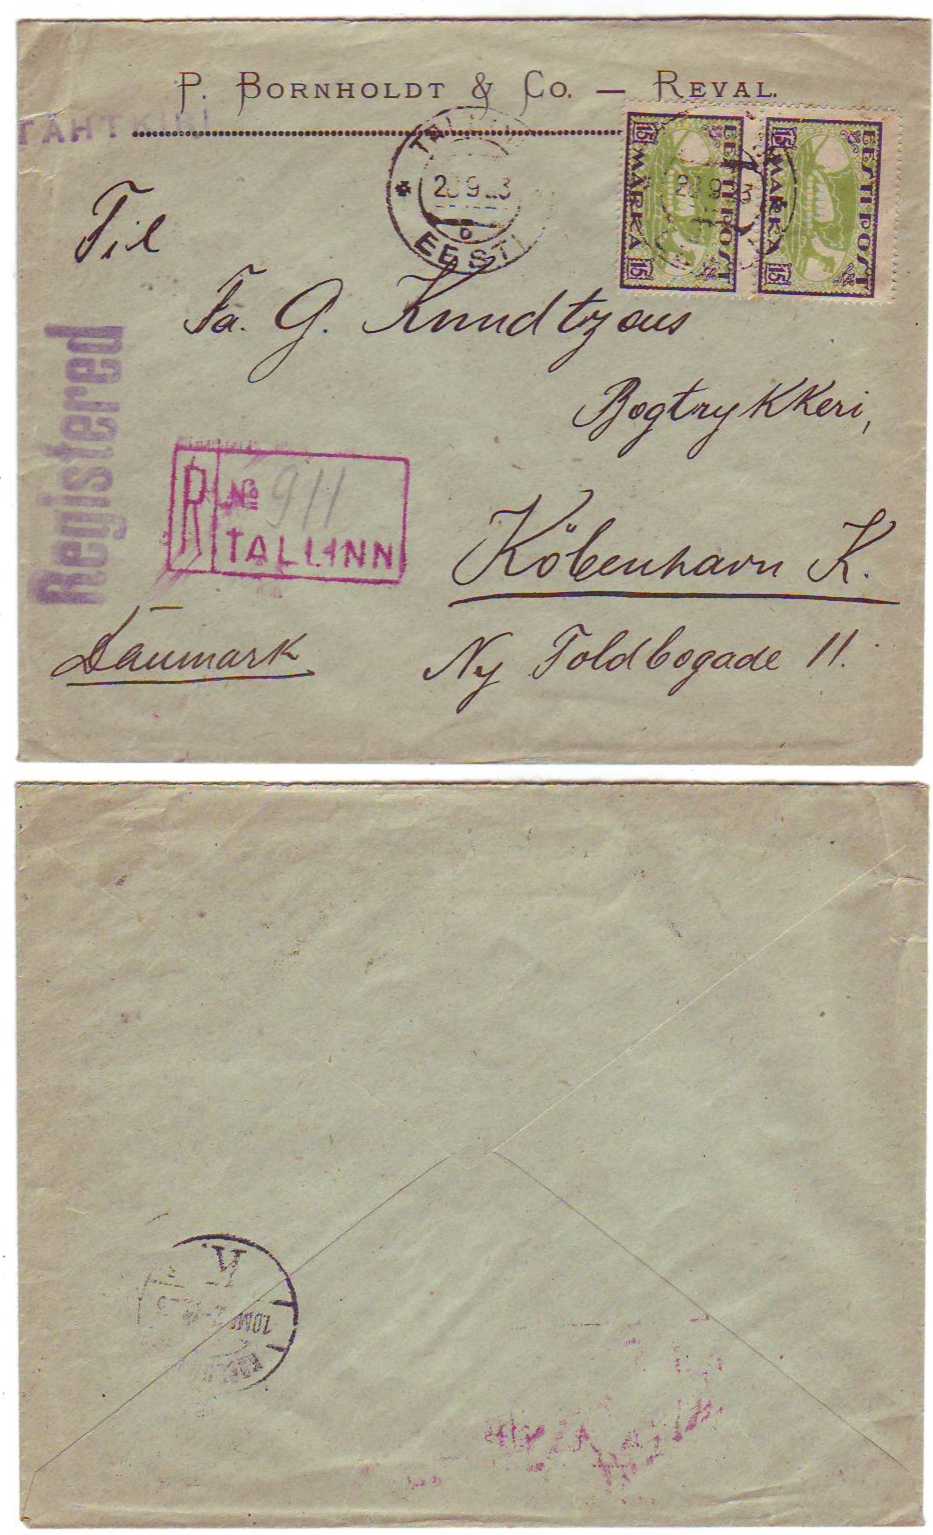 P. BORNHOLDT & CO. — REVAL.
TÄHTKIRI
TALLINN
* 20 9 23
EESTI
EESTI POST
15 MARKA 15
EESTI POST
15 MARKA 15
Til
Fa. G. Knudtzons
Bogtrykkeri,
Registered
R № 911
TALLINN
Köbenhavn K.
Danmark
Ny Toldbogade 11.
K.